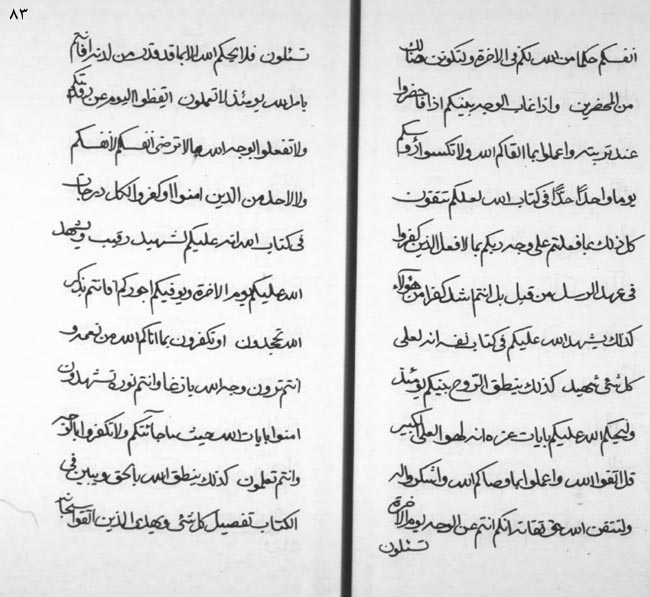 ٨٣
انفسكم حكما من الله لكم فى الاخرة ولتكونن هنالك
من المحضرين واذا غاب الوجه بينكم اذا فاحضروا
عند تربته واعملوا بما القاكم الله ولا تكسبوا
يوما واحدا حدا فى كتاب الله لعلكم تتقون
كل ذلك بما فعلتم على وجه ربكم بما لا فعل الذين كفروا
فى عهد الرسل من قبل بل انتم اشد كفرا من هؤلاء
كذلك يشهد الله عليكم فى كتاب نفسه انه لعلى
كل شئ شهيد كذلك ينطق الروح بينكم يومئذ
وليحكم الله عليكم بايات عزه انه لهو العلى الكبير
قل اتقوا الله واعملوا بما وصاكم الله واشكروا له
ولتتقن الله حق تقاته انكم انتم عن الوجه يوم الاخرة
تسئلون
تسئلون فلا يحكم الله الا بما قد قدر من لدنه
بامر الله يومئذ لا تعملون اتيقظوا اليوم عن رقدكم
ولا تفعلوا بوجه الله ما لا ترضى انفسكم لانفسكم
ولا لاحد من الذين امنوا او كفروا لكل درجات
فى كتاب الله انه عليكم لشهيد رقيب ويشهد
الله عليكم يوم الاخرة ويوفيكم اجوركم افانتم بذكر
الله تجحدون او تكفرون بما اتاكم الله من نعمه و
انتم ترون وجه الله بازغا وانتم نوره تشهدون
امنوا بايات الله حيث ما جائتكم ولا تكفروا بالوجه
وانتم تعلمون كذلك ينطق الله بالحق ويبين فى
الكتاب تفصيل كل شئ ويهدى الذين اتقوا